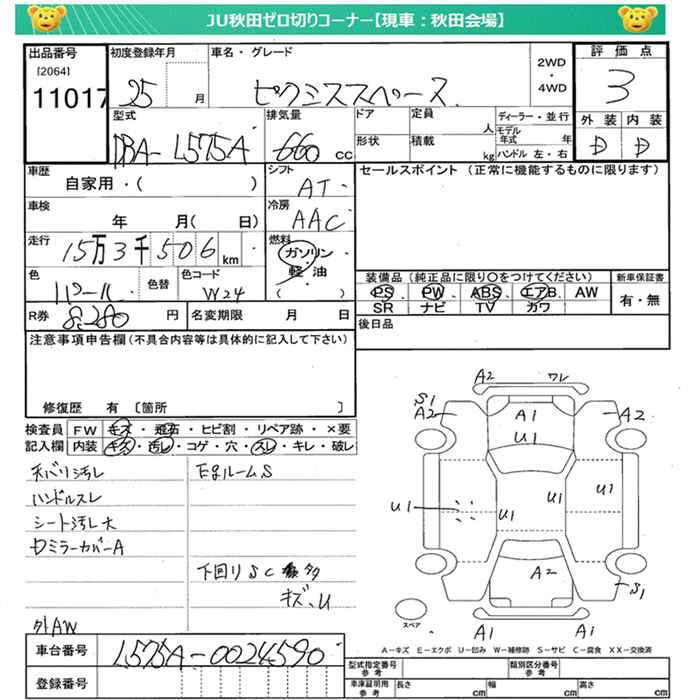 JU秋田ゼロ切りコーナー【現車：秋田会場】
出品番号 初度登録年月 車名・グレード 2WD・4WD 評価点
[2064]
11017 25 月 ピクシススペース 3
型式 排気量 ドア 定員 人 ディーラー・並行 外装 内装
DBA-L575A 660 cc 形状 積載 kg モデル年式 年 ハンドル 左・右 D D
車歴 シフト セールスポイント（正常に機能するものに限ります）
自家用・（ ） AT
車検 冷房
年 月（ 日） AAC
走行 燃料
15万3千506km ガソリン
軽油
（ ）
色 色替 色コード 装備品（純正品に限り○をつけてください） 新車保証書
パール W24 PS PW ABS エアB AW 有・無
SR ナビ TV カワ
R券 8,280 円 名変期限 月 日 後日品
注意事項申告欄（不具合内容等は具体的に記入して下さい）
修復歴 有〔箇所 〕
検査員 FW キズ・飛石・ヒビ割・リペア跡・×要
記入欄 内装 キズ・汚レ・コゲ・穴・スレ・キレ・破レ
天バリ汚レ EgルームS
ハンドルスレ
シート汚レ大
ロミラーカバーA
下回りSC 多
キズ、U
外AW
A2 ワレ
S1
A2 A1 A2
U1
U1 U1 U1 U1
A2
S1
スペア A1 A1
A－キズ E－エクボ U－凹み W－補修跡 S－サビ C－腐食 XX－交換済
車台番号 L575A-0024590
登録番号
型式指定番号 参考 類別区分番号 参考
車庫証明用 参考 長さ cm 幅 cm 高さ cm